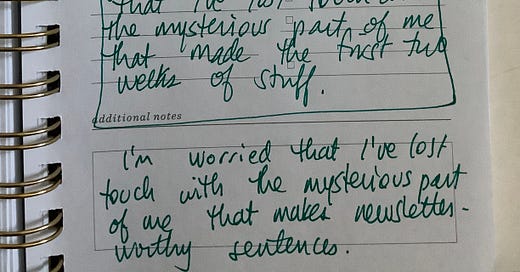 that I've lost touch
the mysterious part of me
that made the first two
weeks of stuff.
additional notes
I'm worried that I've lost
touch with the mysterious part
of me that makes newsletter-
worthy sentences.